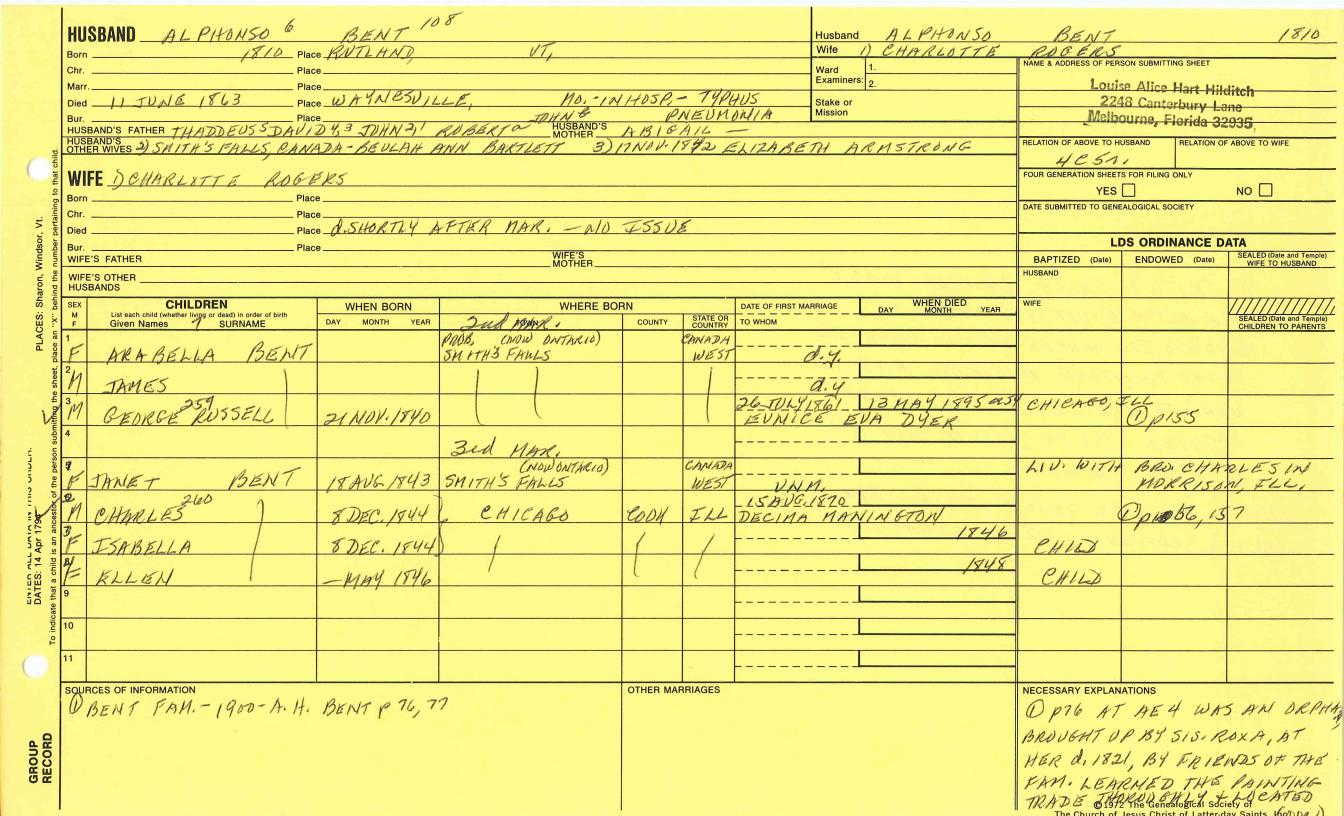 HUSBAND ALPHONSO 6 BENT 108
Born 1810 Place RUTLAND, VT,
Chr. Place
Marr. Place
Died 11 JUNE 1863 Place WAYNESVILLE, MO.-IN HOSP,- TYPHUS
Bur. Place PNEUMONIA
HUSBAND'S FATHER THADDEUS5 DAVID4,3 JOHN2,1 ROBERTa JOHN HUSBAND'S MOTHER ABIGAIL —
HUSBAND'S OTHER WIVES 2) SMITH'S FALLS, CANADA-BEULAH ANN BARTLETT 3) 17 NOV. 1842 ELIZABETH ARMSTRONG
Husband ALPHONSO BENT 1810
Wife 1) CHARLOTTE ROGERS
Ward Examiners: 1.
2.
Stake or Mission
NAME & ADDRESS OF PERSON SUBMITTING SHEET
Louise Alice Hart Hilditch
2248 Canterbury Lane
Melbourne, Florida 32935
RELATION OF ABOVE TO HUSBAND RELATION OF ABOVE TO WIFE
FOUR GENERATION SHEETS FOR FILING ONLY
YES NO
DATE SUBMITTED TO GENEALOGICAL SOCIETY
WIFE 1) CHARLOTTE ROGERS
Born Place
Chr. Place
Died Place d. SHORTLY AFTER MAR. — NO ISSUE
Bur. Place
WIFE'S FATHER WIFE'S MOTHER
WIFE'S OTHER HUSBANDS
LDS ORDINANCE DATA
BAPTIZED (Date) ENDOWED (Date) SEALED (Date and Temple) WIFE TO HUSBAND
HUSBAND
WIFE
SEALED (Date and Temple) CHILDREN TO PARENTS
SEX M F
CHILDREN
List each child (whether living or dead) in order of birth
Given Names 7 SURNAME
WHEN BORN
DAY MONTH YEAR
WHERE BORN
2nd MAR. COUNTY STATE OR COUNTRY
DATE OF FIRST MARRIAGE
TO WHOM
WHEN DIED
DAY MONTH YEAR
1 F ARABELLA BENT PROB. (NOW ONTARIO) SMITH'S FALLS CANADA WEST d.y.
2 M JAMES d.y
3 M GEORGE 259 RUSSELL 21 NOV. 1840 26 JULY 1861 13 MAY 1895 CHICAGO, ILL
EUNICE EVA DYER ① p155
4 3rd MAR.
F JANET BENT 18 AUG 1843 (NOW ONTARIO) SMITH'S FALLS CANADA WEST UNM. LIV. WITH BRO. CHARLES IN MORRISON, ILL.
M CHARLES 260 8 DEC. 1844 CHICAGO COOK ILL 15 AUG. 1870
DECIMA MANINGTON
F ISABELLA 8 DEC. 1844 1846 CHILD
F ELLEN — MAY 1846 1848 CHILD
9
10
11
SOURCES OF INFORMATION
① BENT FAM.-1900-A.H. BENT p 76,77
OTHER MARRIAGES
NECESSARY EXPLANATIONS
① p76 AT AE 4 WAS AN ORPHAN,
BROUGHT UP BY SIS. ROXA, AT
HER d. 1821, BY FRIENDS OF THE
FAM. LEARNED THE PAINTING
TRADE THOROUGHLY & LOCATED
©1972 The Genealogical Society of
The Church of Jesus Christ of Latter-day Saints
PLACES: Sharon, Windsor, Vt.
ENTER ALL DATA IN THIS ORDER:
DATES: 14 Apr 179
To indicate that a child is an ancestor of the person submitting the sheet, place an "X" behind the number pertaining to that child.
GROUP RECORD